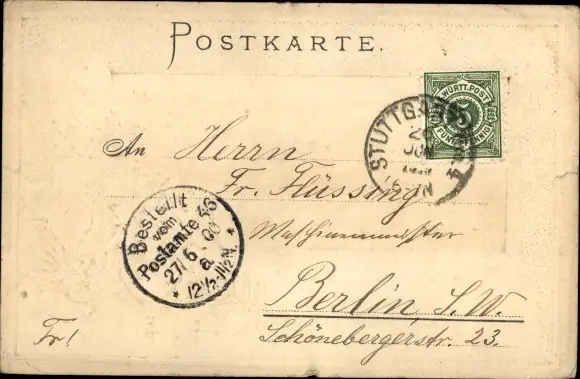 POSTKARTE.
WÜRTT. POST
5
FÜNF PFENNIG
STUTTGART
JUN
An Herrn
Fr. Flüssing
Maschinenmeister
Berlin, S.W.
Schönebergerstr. 23.
Fr!
Bestellt
vom
Postamte 46
27/6.00
a
* 12½-1½N. *